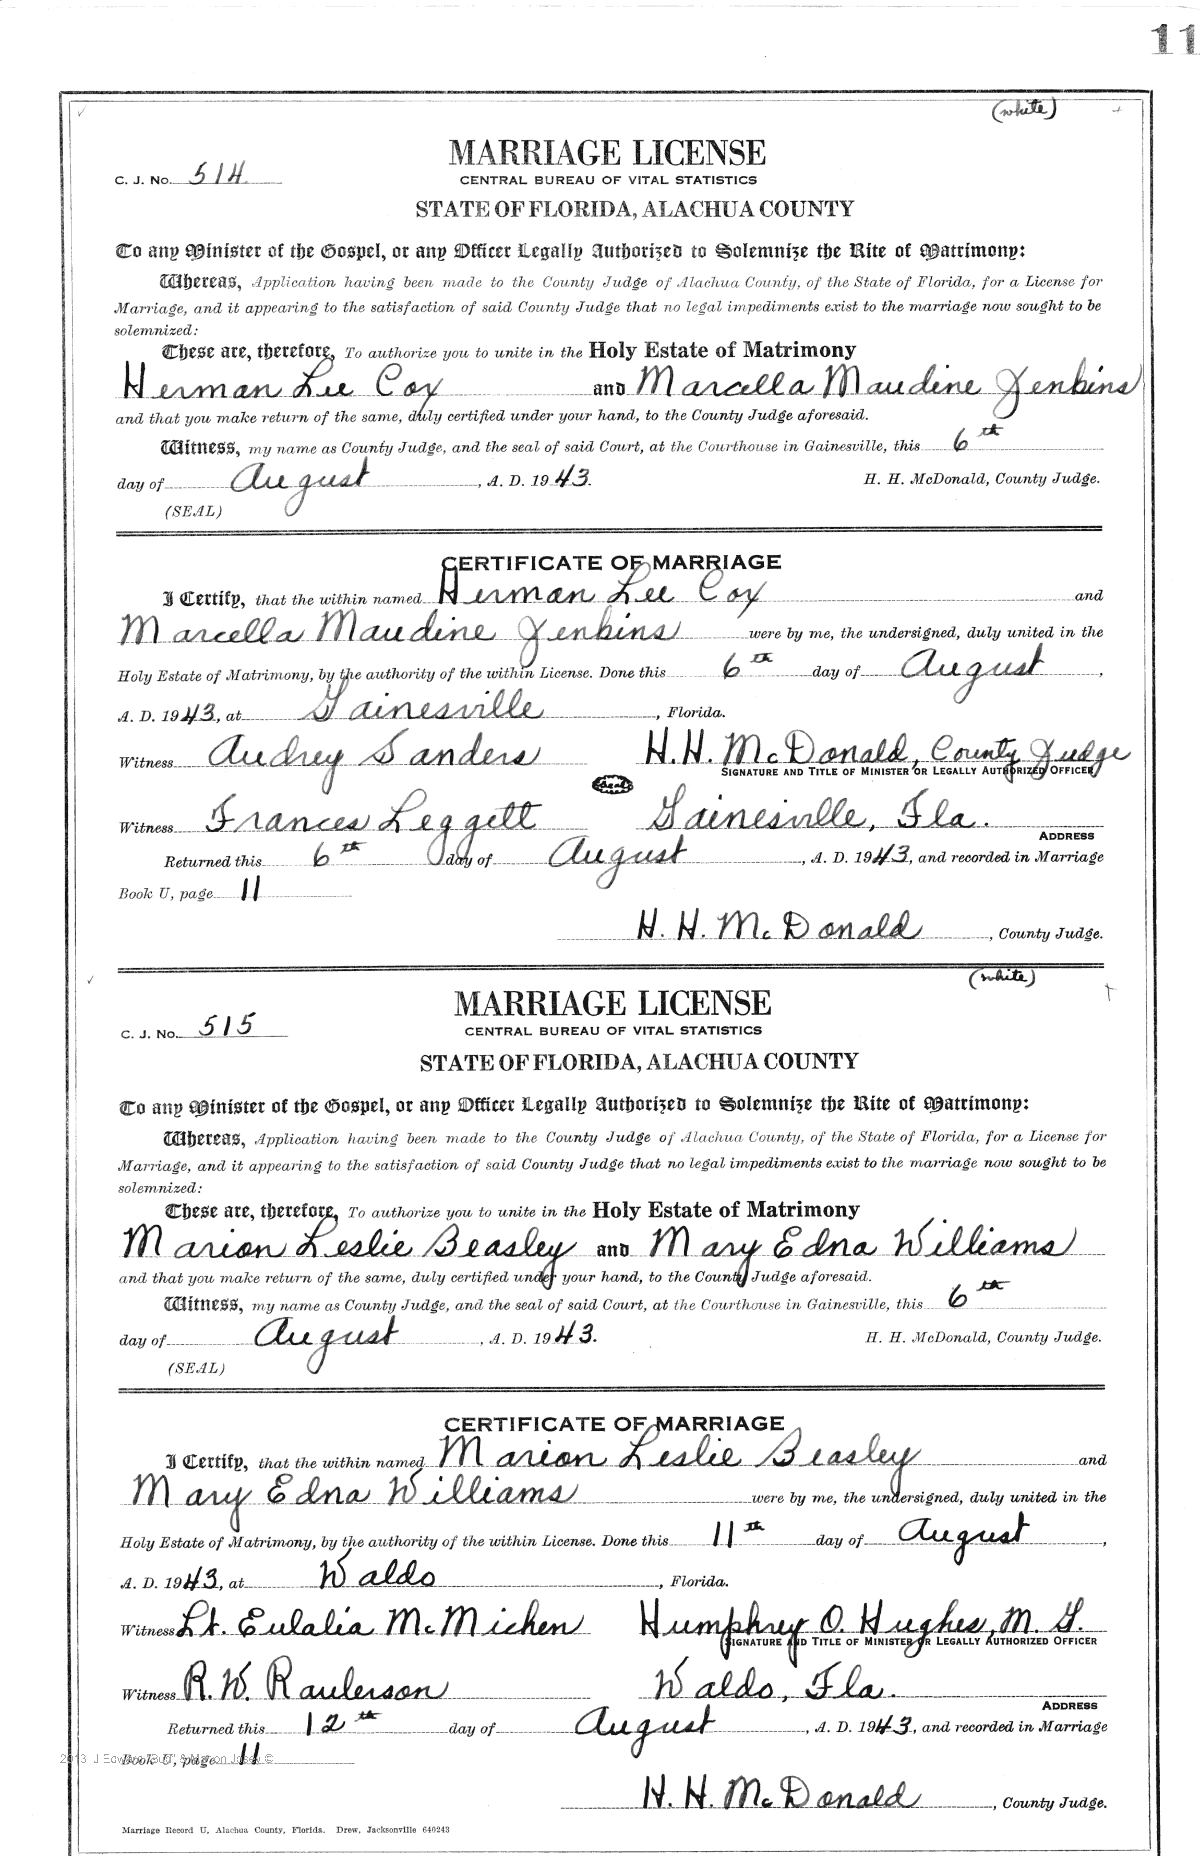 11
(white)
MARRIAGE LICENSE
C. J. No. 514
CENTRAL BUREAU OF VITAL STATISTICS
STATE OF FLORIDA, ALACHUA COUNTY
To any Minister of the Gospel, or any Officer Legally Authorized to Solemnize the Rite of Matrimony:
Whereas, Application having been made to the County Judge of Alachua County, of the State of Florida, for a License for
Marriage, and it appearing to the satisfaction of said County Judge that no legal impediments exist to the marriage now sought to be
solemnized:
These are, therefore, To authorize you to unite in the Holy Estate of Matrimony
Herman Lee Cox and Marcella Maudine Jenkins
and that you make return of the same, duly certified under your hand, to the County Judge aforesaid.
Witness, my name as County Judge, and the seal of said Court, at the Courthouse in Gainesville, this 6th
day of August, A. D. 1943. H. H. McDonald, County Judge.
(SEAL)
CERTIFICATE OF MARRIAGE
I Certify, that the within named Herman Lee Cox and
Marcella Maudine Jenkins were by me, the undersigned, duly united in the
Holy Estate of Matrimony, by the authority of the within License. Done this 6th day of August,
A. D. 1943, at Gainesville, Florida.
Witness Audrey Sanders H. H. McDonald, County Judge
SIGNATURE AND TITLE OF MINISTER OR LEGALLY AUTHORIZED OFFICER
(Seal)
Witness Frances Leggett Gainesville, Fla.
ADDRESS
Returned this 6th day of August, A. D. 1943, and recorded in Marriage
Book U, page 11
H. H. McDonald, County Judge.
(white)
MARRIAGE LICENSE
C. J. No. 515
CENTRAL BUREAU OF VITAL STATISTICS
STATE OF FLORIDA, ALACHUA COUNTY
To any Minister of the Gospel, or any Officer Legally Authorized to Solemnize the Rite of Matrimony:
Whereas, Application having been made to the County Judge of Alachua County, of the State of Florida, for a License for
Marriage, and it appearing to the satisfaction of said County Judge that no legal impediments exist to the marriage now sought to be
solemnized:
These are, therefore, To authorize you to unite in the Holy Estate of Matrimony
Marion Leslie Beasley and Mary Edna Williams
and that you make return of the same, duly certified under your hand, to the County Judge aforesaid.
Witness, my name as County Judge, and the seal of said Court, at the Courthouse in Gainesville, this 6th
day of August, A. D. 1943. H. H. McDonald, County Judge.
(SEAL)
CERTIFICATE OF MARRIAGE
I Certify, that the within named Marion Leslie Beasley and
Mary Edna Williams were by me, the undersigned, duly united in the
Holy Estate of Matrimony, by the authority of the within License. Done this 11th day of August,
A. D. 1943, at Waldo, Florida.
Witness Lt. Eulalia McMichen Humphrey O. Hughes, M. G.
SIGNATURE AND TITLE OF MINISTER OR LEGALLY AUTHORIZED OFFICER
Witness R. W. Raulerson Waldo, Fla.
ADDRESS
Returned this 12th day of August, A. D. 1943, and recorded in Marriage
Book U, page 11
H. H. McDonald, County Judge.
Marriage Record U, Alachua County, Florida. Drew, Jacksonville 640243